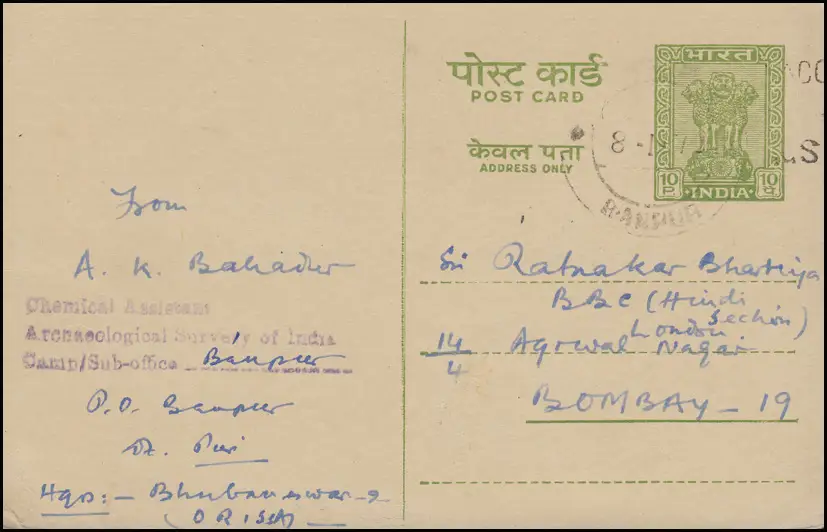 From
A. K. Bahadur
Chemical Assistant
Archaeological Survey of India
Camp/Sub-office Banpur
P.O. Banpur
Dt. Puri
Hqrs:- Bhubaneswar-2
(ORISSA)
पोस्ट कार्ड
POST CARD
केवल पता
ADDRESS ONLY
भारत
10 P
10 पै
INDIA
8
BANPUR
Sri Ratnakar Bhartiya
BBC (Hindi
Section)
London
14/4 Agrwal Nagar
BOMBAY-19